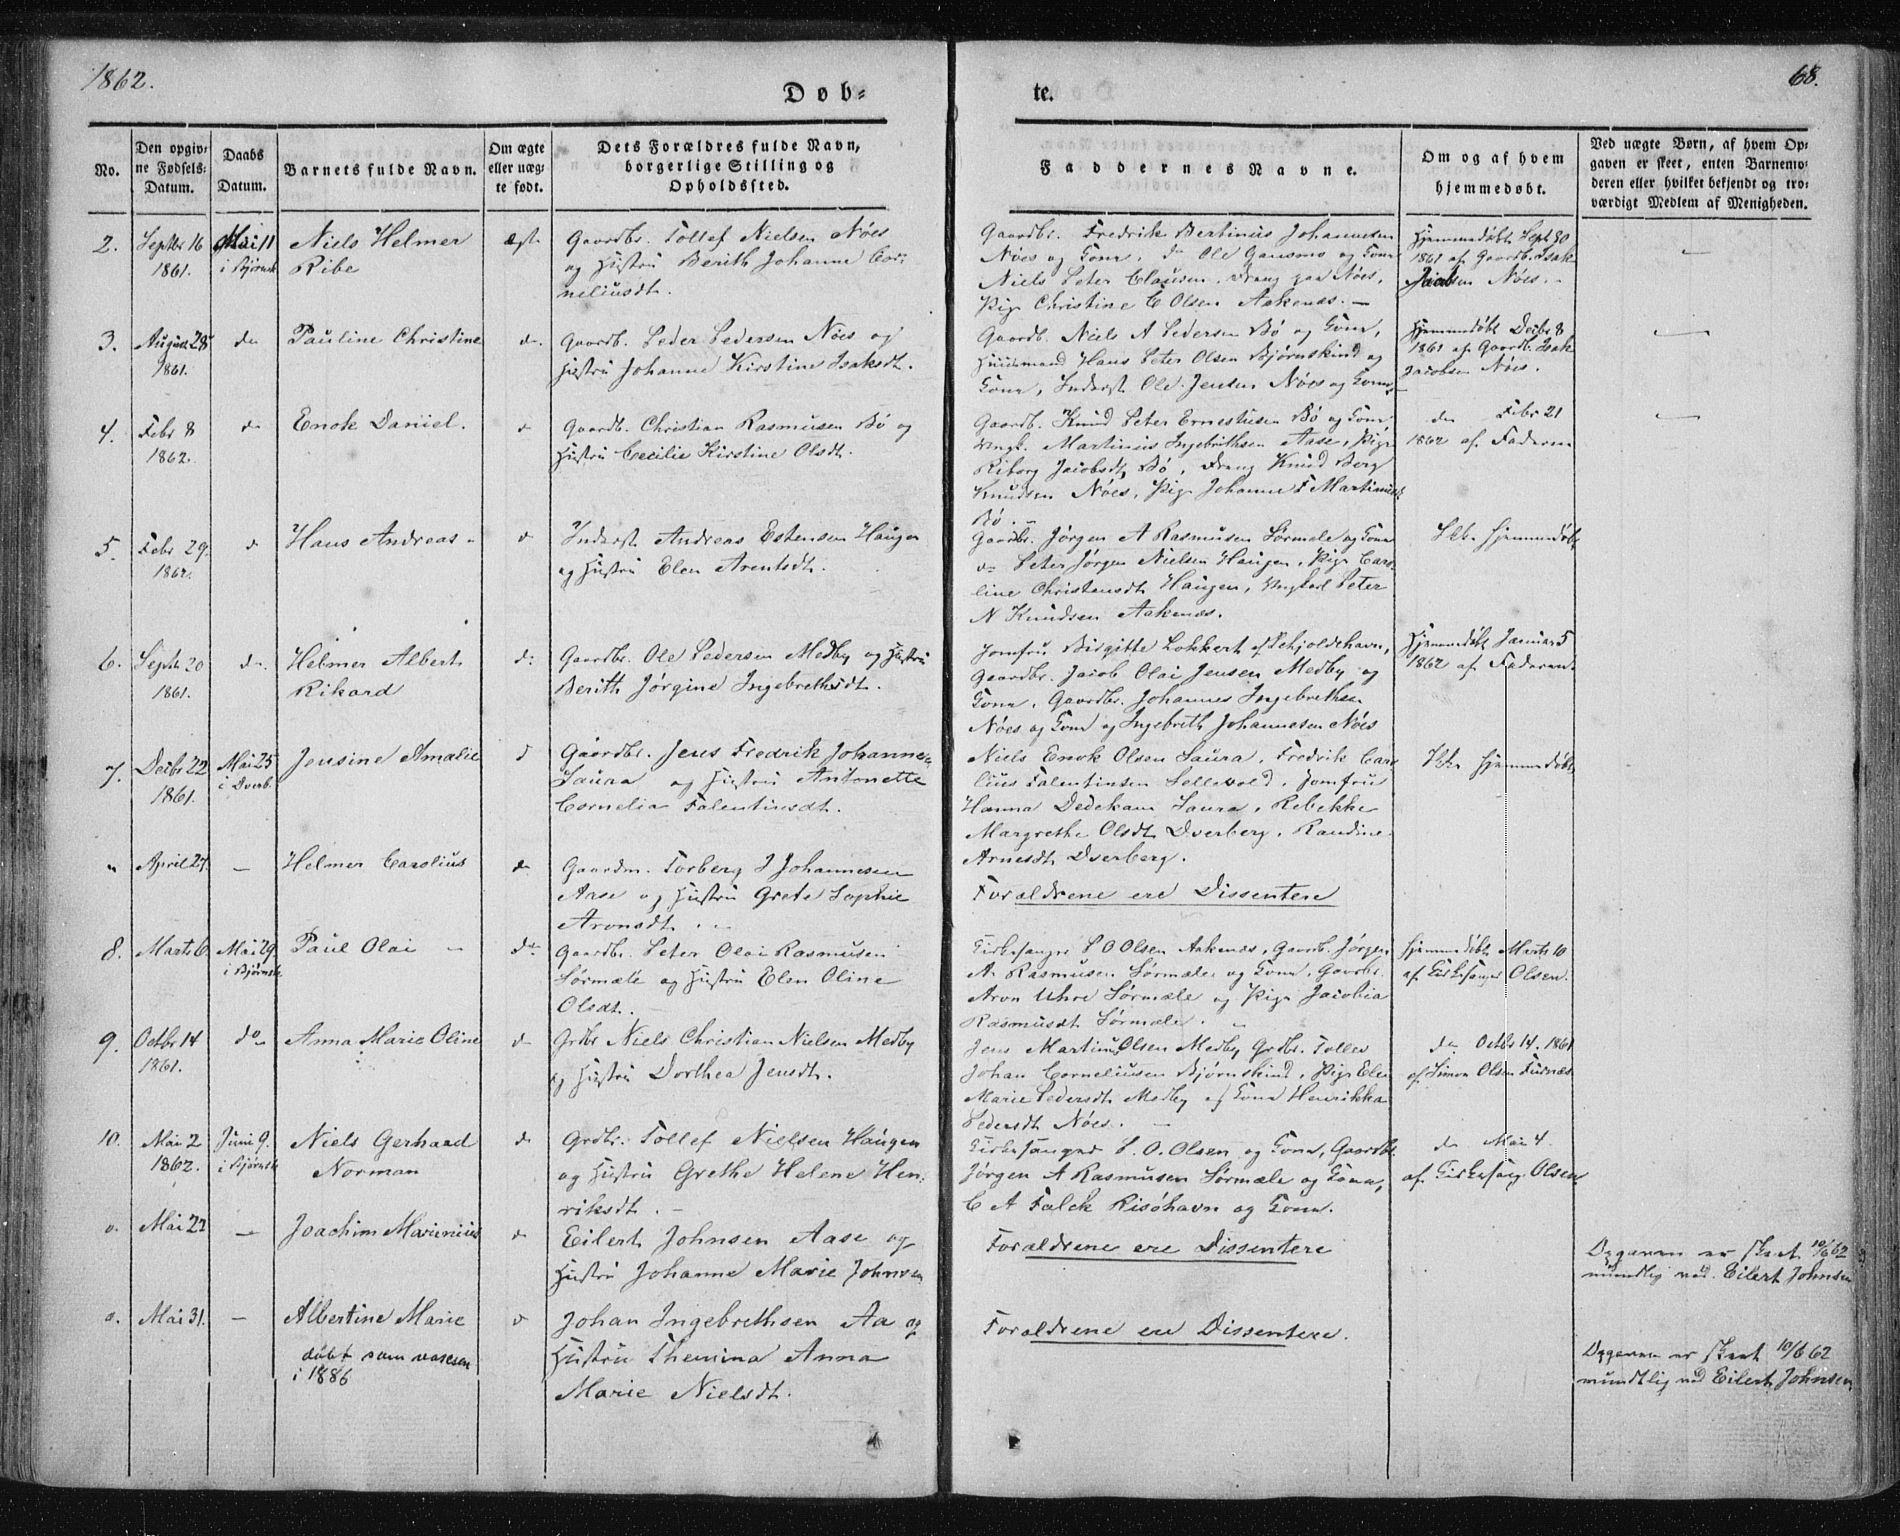 1862.
68.
Døb-
te.
No.
Den opgiv-
ne Fødsels-
Datum.
Daabs
Datum.
Barnets fulde Navn.
Om ægte
eller uæg-
te født.
Dets Forældres fulde Navn,
borgerlige Stilling og
Opholdssted.
Faddernes Navne.
Om og af hvem
hjemmedøbt.
Ved uægte Børn, af hvem Op-
gaven er skeet, enten Barnemo-
deren eller hvilket bekjendt og tro-
værdigt Medlem af Menigheden.
2.
Septbr 16
1861.
Mai 11
i Bjørnsk
Niels Helmer
Ribe
ægte
Gaardbr. Tollef Nielsen Nøes
og Hustru Berith Johanne Cor-
neliusdt.
Gaardbr. Fredrik Bertinius Johannesen
Nøes og Kone, do Ole Gausmo og Kone
Niels Peter Clausen, Dreng paa Nøes,
Pige Christine C Olsen Aaknæs. —
Hjemmedøbt Sept 30
1861 af Gaardb. Isak
Jacobsen Nøes. -
3.
August 28
1861.
do
Pauline Christine
do.
Gaardb. Peder Pedersen Nøes og
Hustru Johanne Kirstine Isaksdt.
Gaardb. Niels A Pedersen Bø og Kone,
Huusmand Hans Peter Olsen Bjørnskind og
Kone, Inderst Ole Jensen Nøes og Kone
Hjemmedøbt Decbr 8
1861 af Gaardb. Isak
Jacobsen Nøes.
4.
Febr 8
1862.
do
Enok Daniel.
do
Gaardb. Christian Rasmusen Bø og
Hustru Cecilie Kirstine Olsdt.
Gaardb. Knud Peter Ernestusen Bø og Kone
Ungk. Martinus Ingebrithsen Aase, Pige
Riborg Jacobsdt Bø, Dreng Knud Berg
Knudsen Nøes, Pige Johanne F Martinusdt
Bø. -
do Febr 21
1862 af Faderen
5.
Febr 29.
1862.
do
Hans Andreas -
do
Inderst Andreas Estensen Haugen
og Hustru Elen Arentsdt.
Gaardbr. Jørgen A Rasmusen Sørmæle og Kone
do Peter Jørgen Nielsen Haugen, Pige Caro-
line Christensdt Haugen, Ungkarl Peter
N Knudsen Aaknæs.
Ikke hjemmedøbt
6.
Septbr 20
1861.
do.
Helmer Albert
Rikard
do
Gaardbr. Ole Pedersen Medby og Hustru
Berith Jørgine Ingebrethsdt.
Jomfru Birgitte Lokkert af Skjoldehavn,
Gaardbr. Jacob Olai Jensen Medby og
Kone, Gaardbr. Johannes Ingebrethsen
Nøes og Kone og Ingebrith Johannesen Nøes
Hjemmedøbt Januar 5
1862 af Faderen
7.
Decbr 22
1861.
Mai 25
i Dverb.
Jensine Amalie
do
Gaardbr. Jens Fredrik Johannesen
Saura og Hustru Antonette
Cornelia Falentinsdt.
Niels Enok Olsen Saura, Fredrik Caro-
lius Falentinsen Sellevold, Jomfru
Hanna Dedekam Saura, Rebekke
Margrethe Olsdt Dverberg, Randine
Arnesdt Dverberg.
Ikke hjemmedøbt
"
April 27.
—
Helmer Carolius
do
Gaardm. Torberg J Johannesen
Aase og Hustru Grete Sophie
Aronsdt.
Forældrene ere Dissentere
8.
Marts 6.
Mai 29.
i Bjørnsk
Paul Olai
do
Gaardbr. Peter Olai Rasmusen
Sørmæle og Hustru Elen Oline
Olsdt.
Kirkesanger P O Olsen Aaknæs, Gaardb. Jørgen
A. Rasmusen Sørmæle og Kone, Gaardbr.
Aron Uhre Sørmæle og Pige Jacobia
Rasmusdt Sørmæle.
Hjemmedøbt Marts 10
af Kirkesanger Olsen.
9.
Octbr 14
1861.
do
Anna Marie Oline
do
Grdbr Niels Christian Nielsen Medby
og Hustru Dorthea Jensdt.
Jens Martinus Olsen Medby Grdbr. Tollev
Johan Corneliusen Bjørnskind, Pige Elen
Marie Pedersdt Medby og Kone Henrikka
Pedersdt Nøes.
do Octbr 14. 1861
af Simon Olsen Fusnæs
10.
Mai 2
1862.
Juni 9.
i Bjørnsk
Niels Gerhard
Norman
do
Grdbr. Tollef Nielsen Haugen
og Hustru Grethe Helene Hen-
riksdt. -
Kirkesanger P. O. Olsen og Kone, Gaardbr.
Jørgen A Rasmusen Sørmæle og Kone,
C A Falck Risøhavn og Kone.
do Mai 4.
af Kirkesang. Olsen
o.
Mai 22
—
Joachim Marinius
do
Eilert Johnsen Aase og
Hustru Johanne Marie Johnsen
Forældrene ere Dissentere
Opgaven er skeet 10/6 62
mundtlig ved Eilert Johnsen
o.
Mai 31.
—
Albertine Marie
døbt som voxsen
i 1886
do
Johan Ingebrethsen Aa og
Hustru Themina Anna
Marie Nielsdt.
Forældrene ere Dissentere.
Opgaven er skeet 10/6 62
mundtlig ved Eilert Johnsen